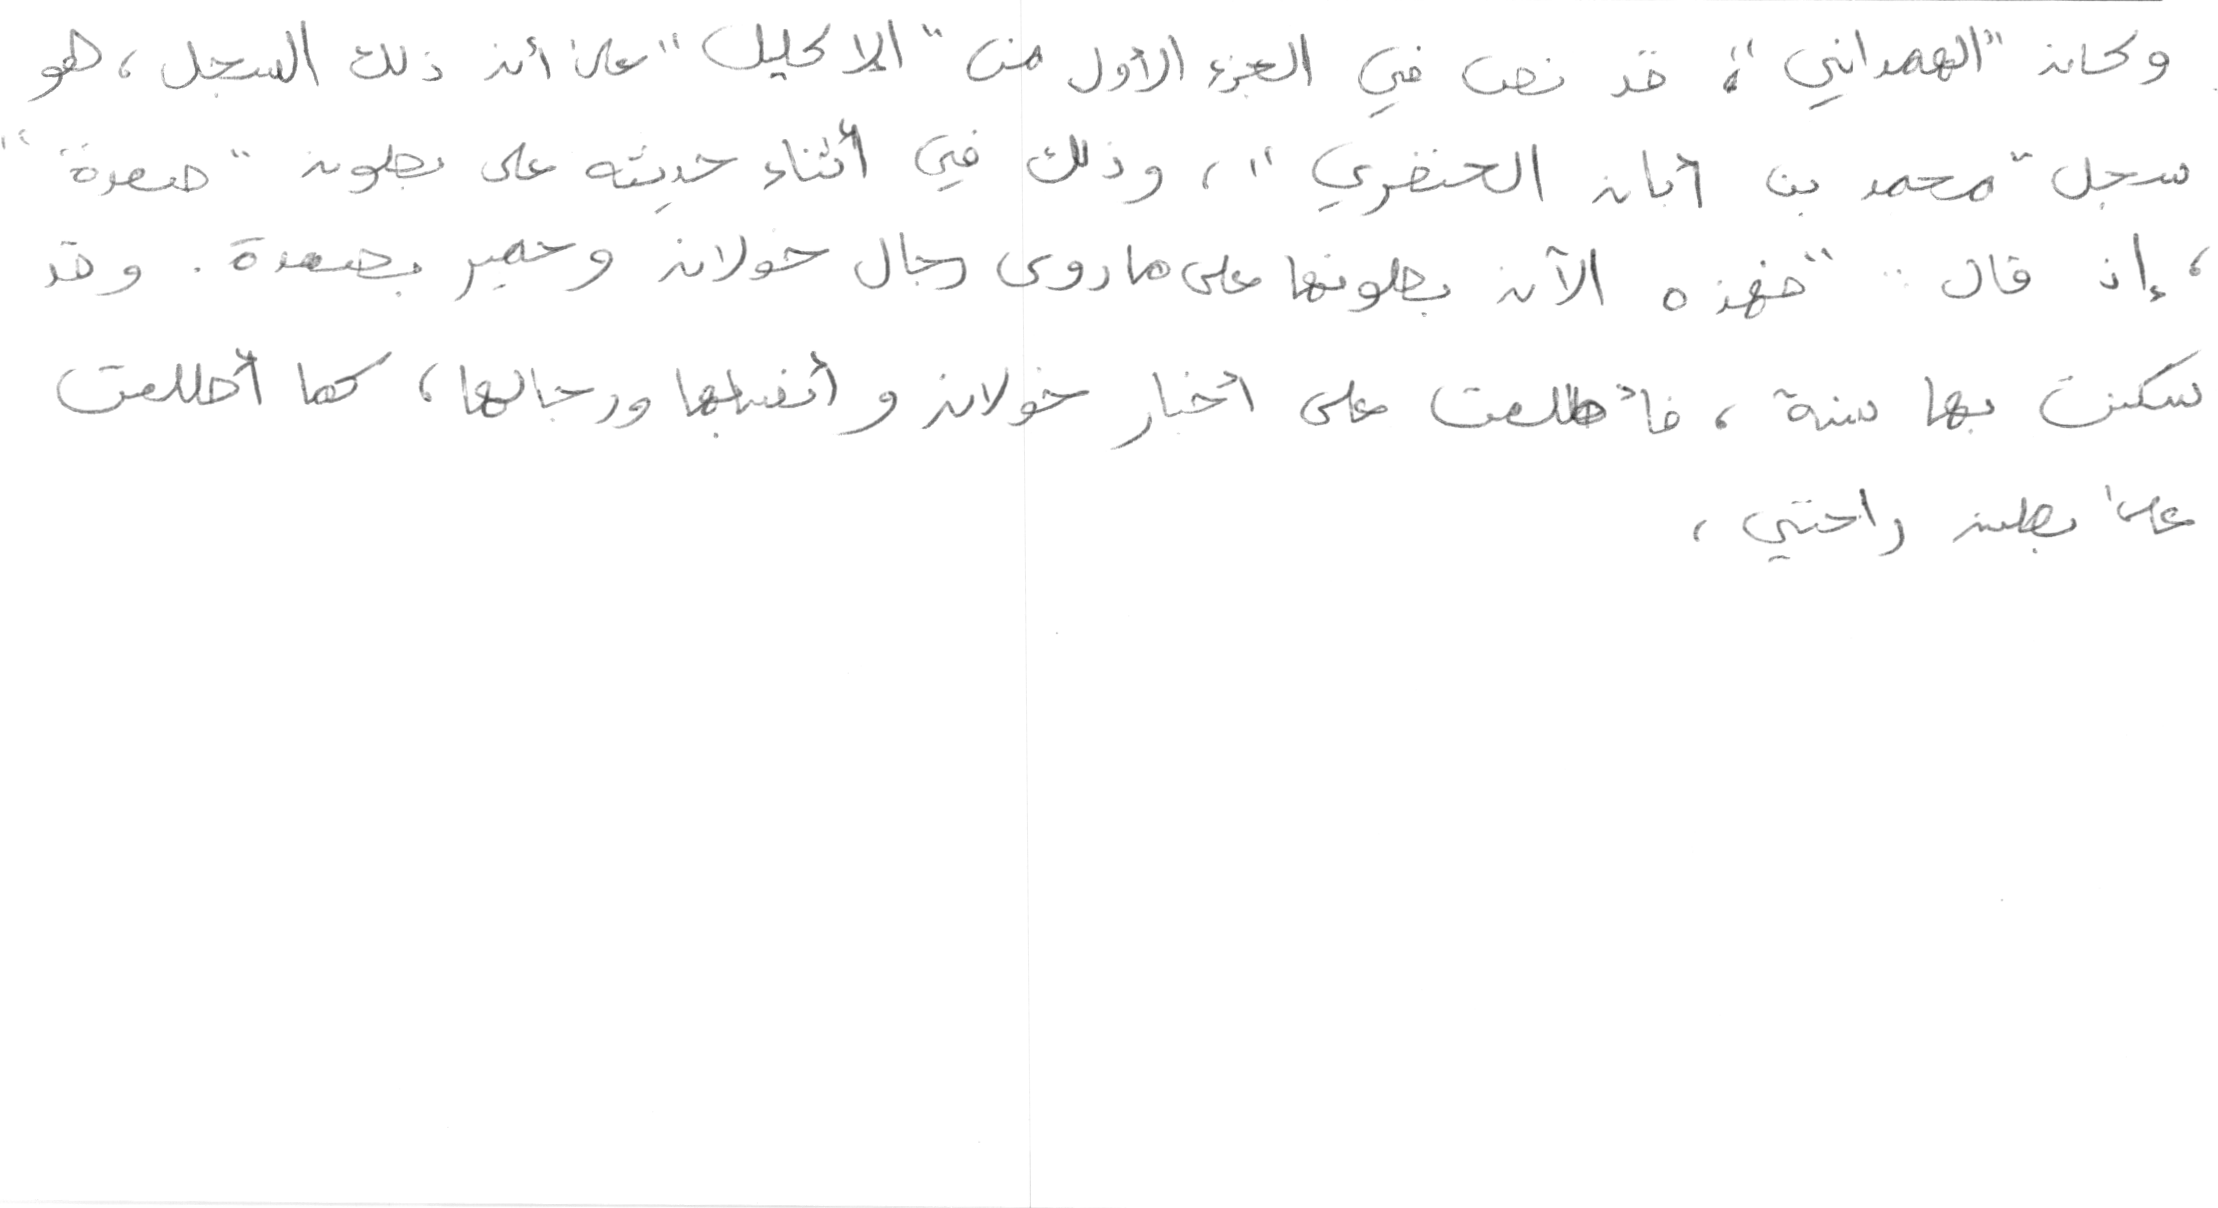 وكان "الهمداني"، قد نص في الجزء الأول من "الإكليل" على أن ذلك السجل، هو
سجل "محمد بن أبان الخنفري"، وذلك في أثناء حديثه على بطون "صعدة"
، إذ قال: "فهذه الآن بطونها على ما روى رجال خولان وحمير بصعدة. وقد
سكنت بها سنة، فأطلعت على أخبار خولان وأنسابها ورجالها، كما أطلعت
على بطن راحتي،